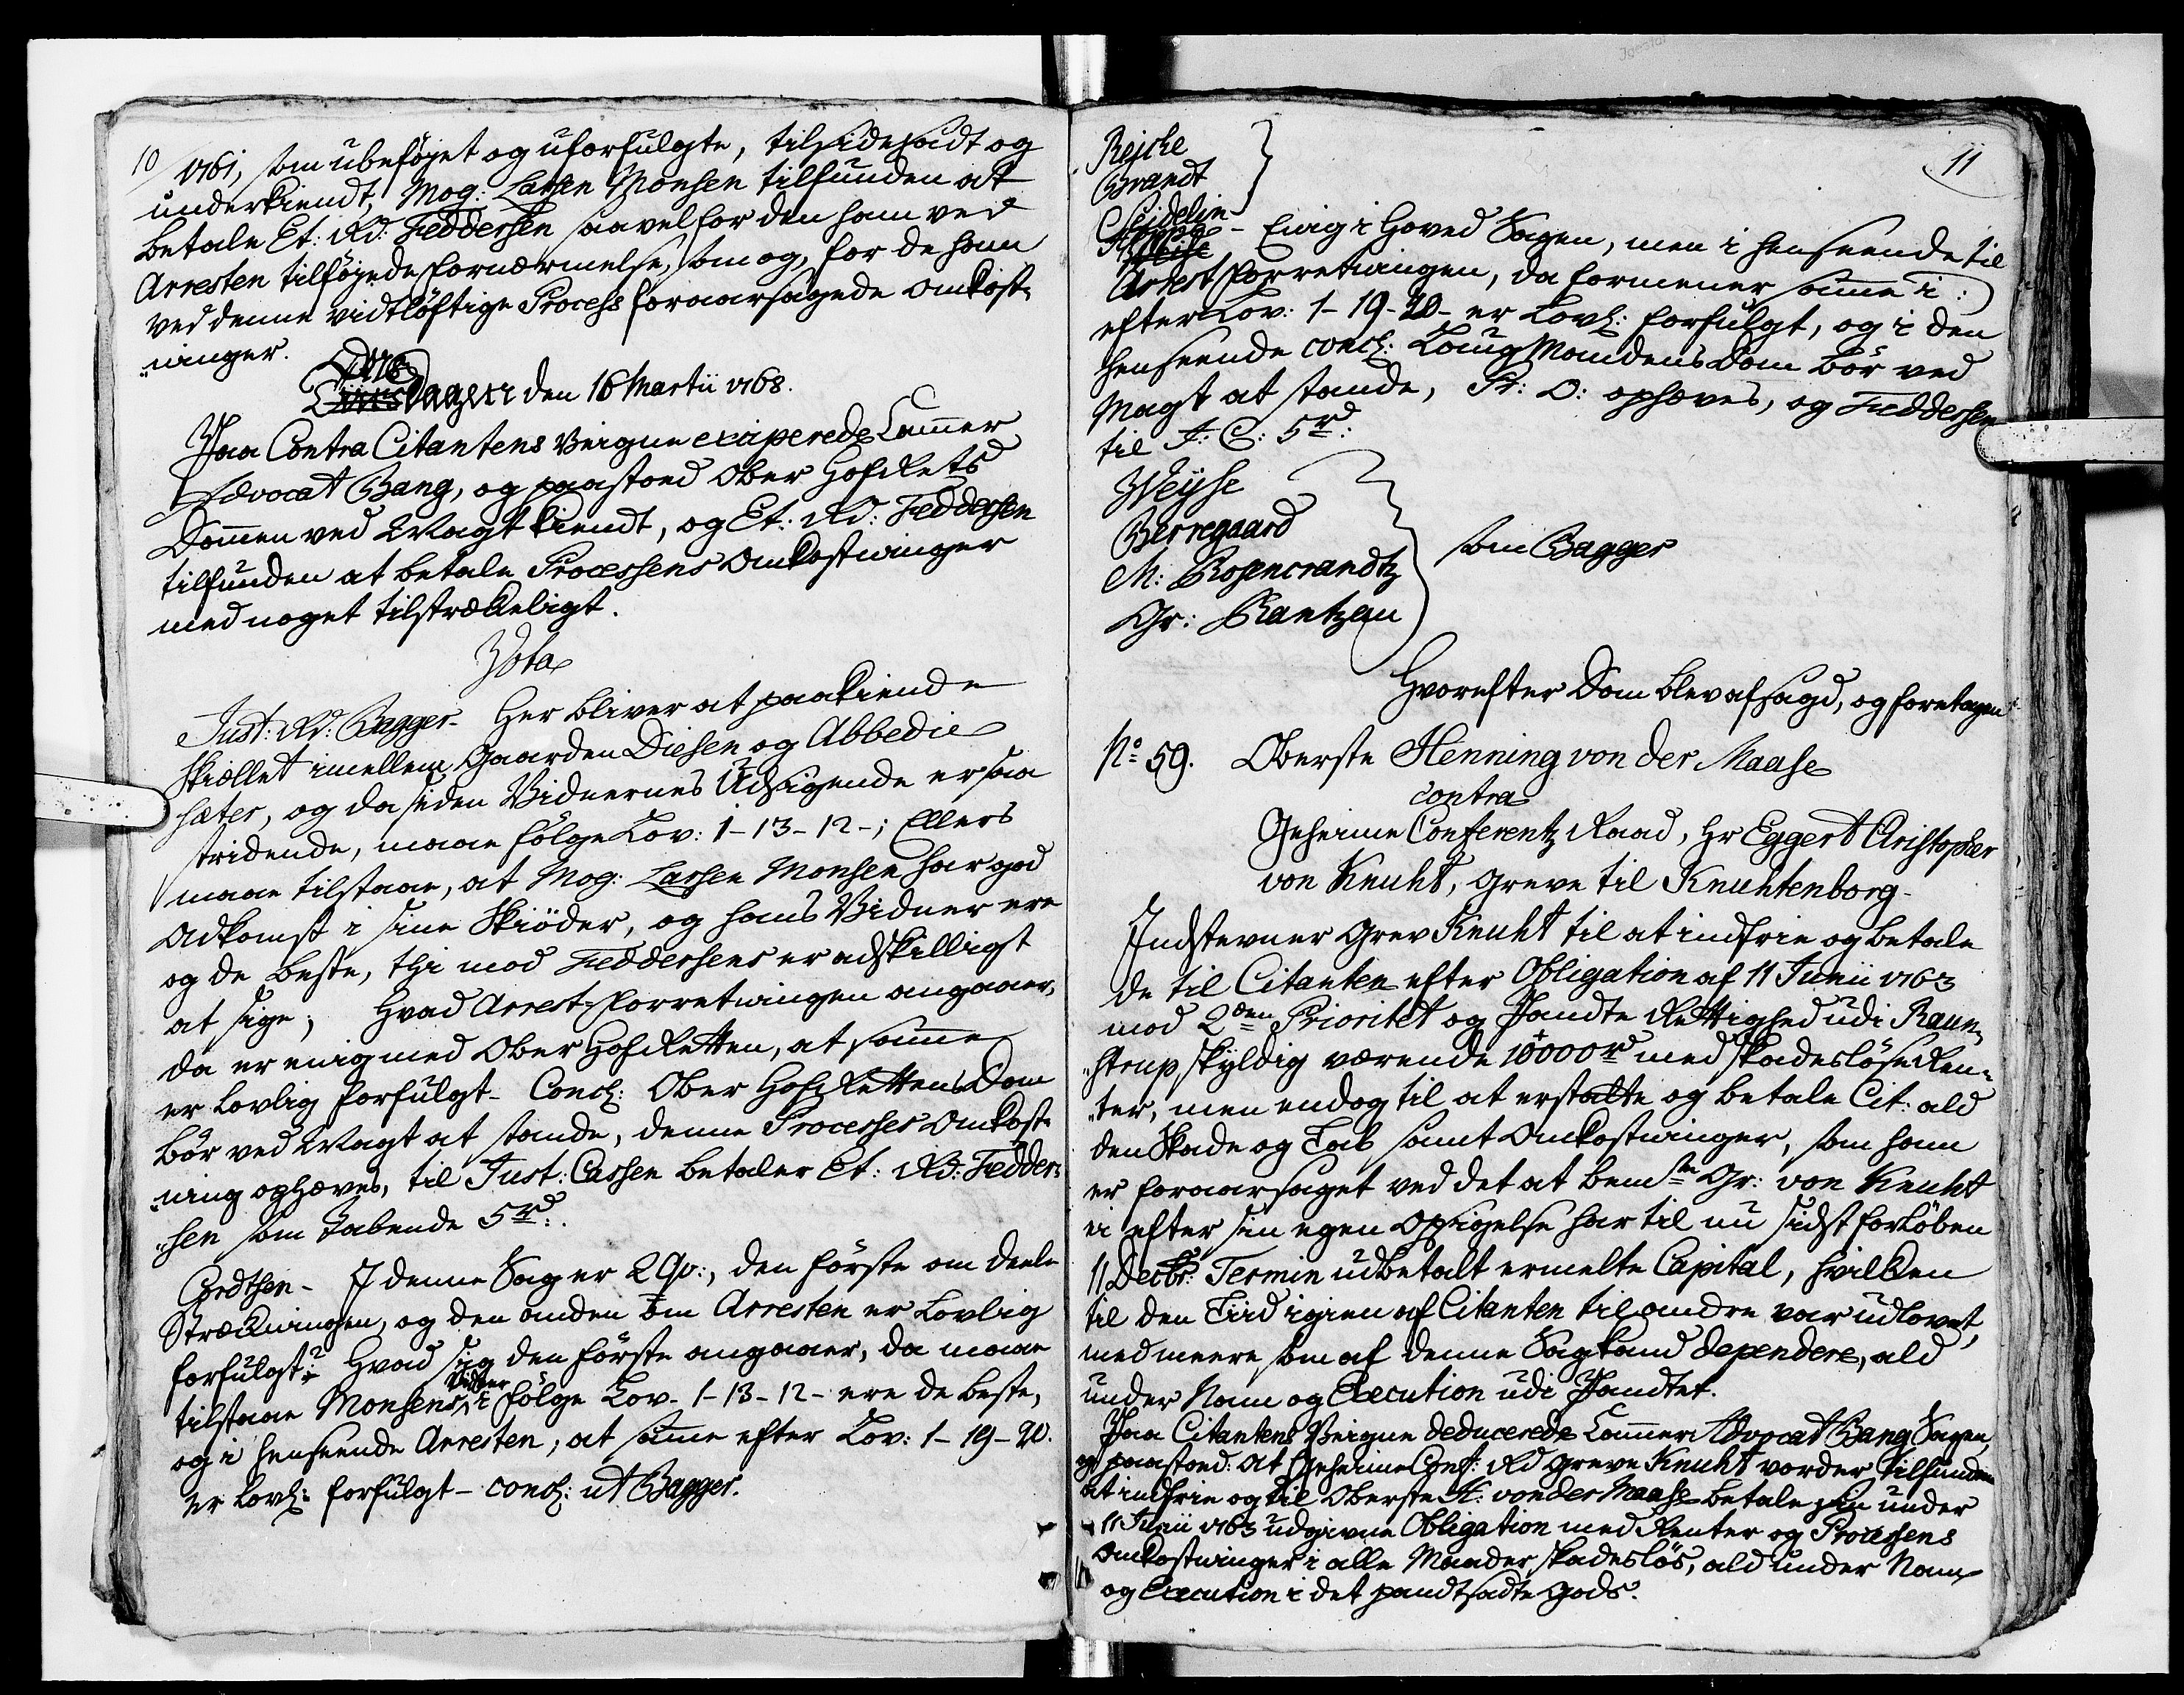 10
1761, som ubeføjet og uforfulgte, tilsidesadt og
underkiendt, Mog: Larsen Monsen tilfunden at
betale Et: Rd: Feddersen saavel for den ham ved
Arresten tilføjede Fornærmelse, som og, for de ham
ved denne vidtløftige Process foraarsagede Omkost-
ninger.
Ons
dagen den 16 Martii 1768.
Paa Contra Citantens Veigne exciperede Cammer
Advocat Bang, og paastoed Ober Hof Retts
Dommen ved Magt kiendt, og Et: Rd: Feddersen
tilfunden at betale Processens Omkostninger
med noget tilstrækkeligt.
Vota
Just: Rd: Bagger - Her bliver at paakiende
Skiællet imellem Gaarden Diesen og Abbedie
Sæter, og da siden Vidnernes Udsigende er saa
stridende, maae følge Lov: 1-13-12-; Ellers
maae tilstaae, at Mog: Larsen Monsen har god
Adkomst i sine Skiøder, og hans Vidner ere
og de beste, thi mod Feddersens er adskilligt
at sige; Hvad Arrest-Forretningen angaaer,
da er enig med Ober Hof Retten, at samme
er lovlig forfulgt - Concl: Ober Hof Rettens Dom
bør ved Magt at stande, denne Processes Omkost-
ning ophæves, til Just: Cassen betaler Et: Rd: Fedder-
sen som tabende 5 rd:.
Cordtsen - I denne Sag er 2 Qv:, den første om Deele
Strækningen, og den anden om Arresten er Lovlig
forfulgt? Hvad sig den første angaaer, da maae
Vidner
tilstaae Monsens, i følge Lov - 1-13-12- ere de beste,
og i henseende Arresten, at samme efter Lov: 1-19-20.
er Lovl: forfulgt - concl: ut Bagger.
11
Rejche
Brandt
Seidelin
- Enig i Hoved Sagen, men i henseende til
Arrest Forretningen, da formener samme i:
efter Lov: 1-19-20- er Lovl: forfulgt, og i den
henseende concl: Laug Mandens Dom bør ved
Magt at stande, Pr: O: ophæves, og Feddersen
til J: C: 5 rd:
Weyse
Berregaard
M: Rosencrandtz
Gr: Rantzau
som Bagger
Hvorefter Dom blev afsagd, og foretagen
No: 59. Oberste Henning von der Maase
contra
Geheime Conferentz Raad, Hr Eggert Christopher
von Knuht, Greve til Knuhtenborg -
Indstevner Grev Knuht til at indfrie og betale
de til Citanten efter Obligation af 11 Junii 1763
mod 2den Prioritet og Pandte Rettighed udi Raun-
strup, skyldig værende 10000 rd med skadesløse Ren-
ter, men endog til at erstatte og betale Cit: ald
den Skade og Tab samt Omkostninger, som ham
er foraarsaget ved det at bemte Gr: von Knuht
ei efter sin egen Opsigelse har til nu sidst forløben
11 Decbr: Termin udbetalt ermelte Capital, hvilken
til den Tiid igien af Citanten til andre var udlovet,
med meere, som af denne Sag kand dependere, ald
under Nam og Execution udi Pandtet.
Paa Citantens Veigne deducerede Cammer Advocat Bang Sagen,
og paastoed: At Geheime Conf: Rd Greve Knuht vorder tilfunden
at indfrie og til Oberste H: von der Maase betale sin under
11 Junii 1763 udgivne Obligation med Renter og Processens
Omkostninger i alle Maader skadesløs, ald under Nam
og Execution i det pandtsadte Gods.